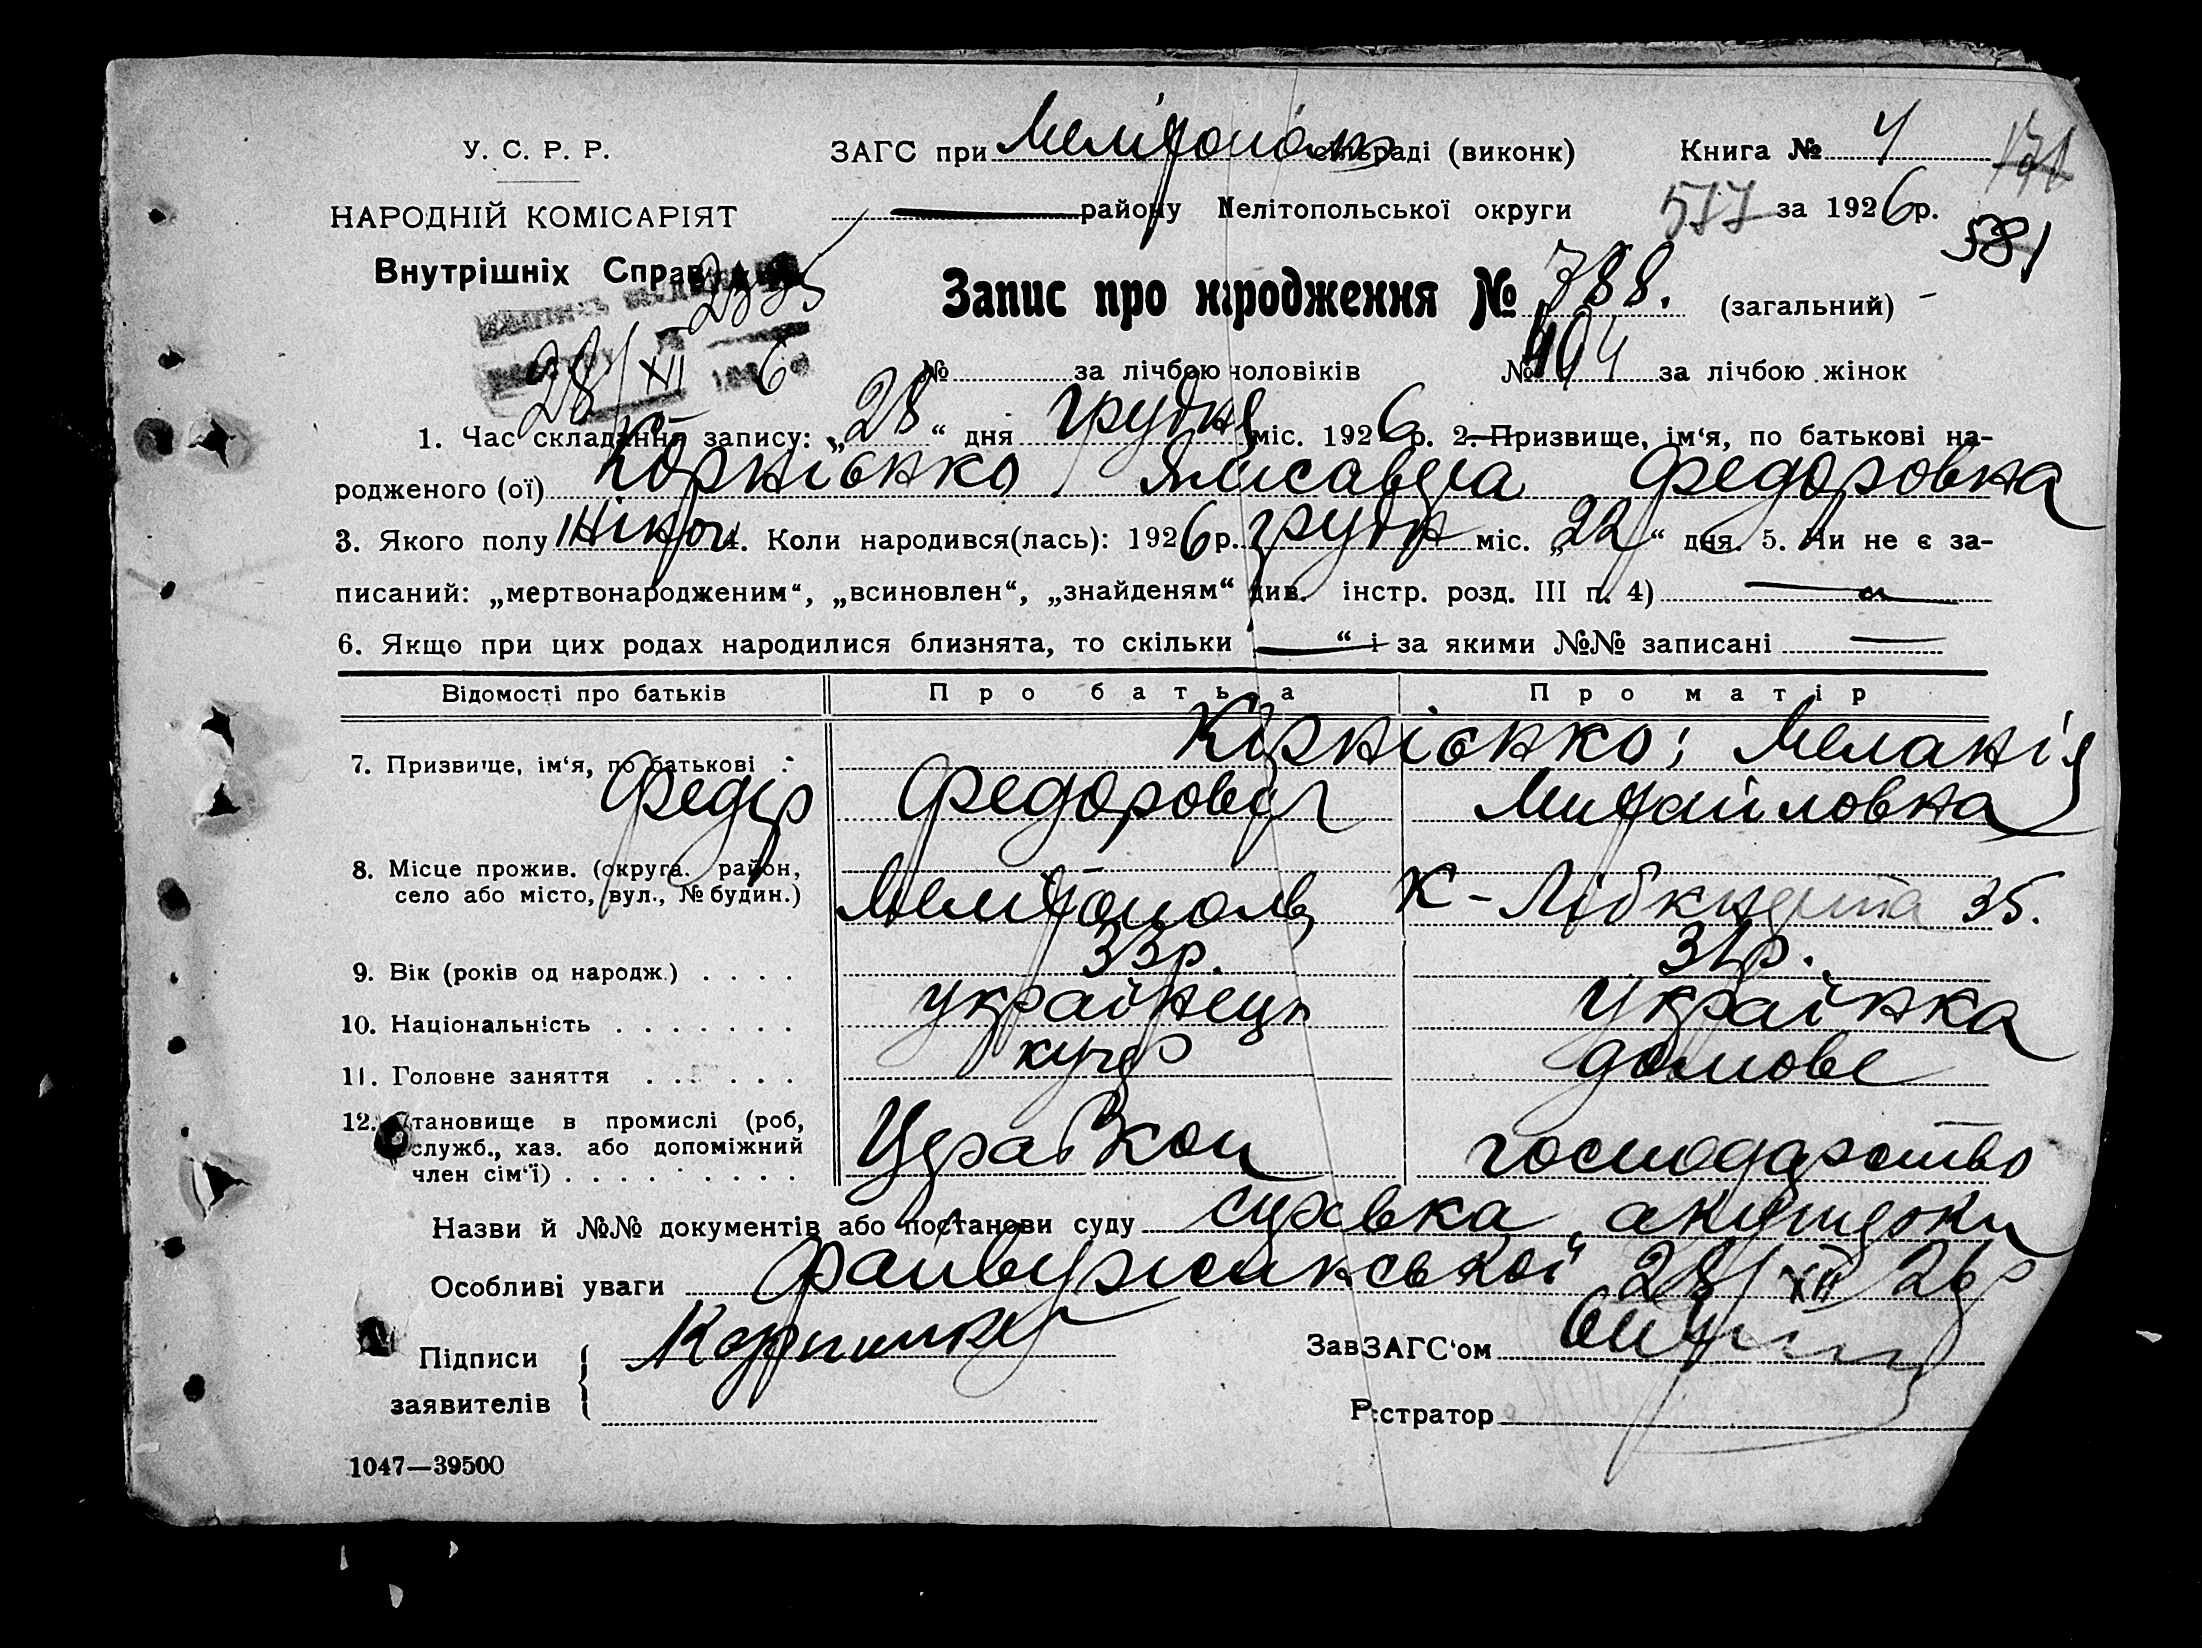 У. С. Р. Р.
НАРОДНІЙ КОМІСАРІЯТ
Внутрішніх Справ
28/XII 6
ЗАГС при сільраді (виконк)
Книга № 4
району Мелітопольської округи
577 за 1926 р.
381
Запис про народження № 788. (загальний)
№ за лічбою чоловіків № 404 за лічбою жінок
1. Час складання запису: „28“ дня грудня міс. 1926 р. 2. Призвище, ім‘я, по батькові на-
родженого (ої) Корнієнко Єлисавета Федоровна
3. Якого полу жіноч 4. Коли народився(лась): 1926 р. грудн міс. „22“ дня. 5. Чи не є за-
писаний: „мертвонародженим“, „всиновлен“, „знайденям“ див. інстр. розд. III п. 4)
6. Якщо при цих родах народилися близнята, то скільки “ і за якими №№ записані
Відомості про батьків Про батька Про матір
7. Призвище, ім‘я, по батькові Корнієнко; Меланія
Федір Федорович Михайловна
8. Місце прожив. (округа, район,
село або місто, вул., № будин.) Мелітополь К-Лібкнехта 35.
9. Вік (років од народж.) 33р. 31р.
10. Національність українець українка
11. Головне заняття кучер домове
12. Становище в промислі (роб,
служб., хаз. або допоміжний
член сім‘ї) господарство
Назви й №№ документів або постанови суду акушерки
Особливі уваги 28/XII 26р
Підписи
заявителів
ЗавЗАГС‘ом
Р:стратор
1047—39500